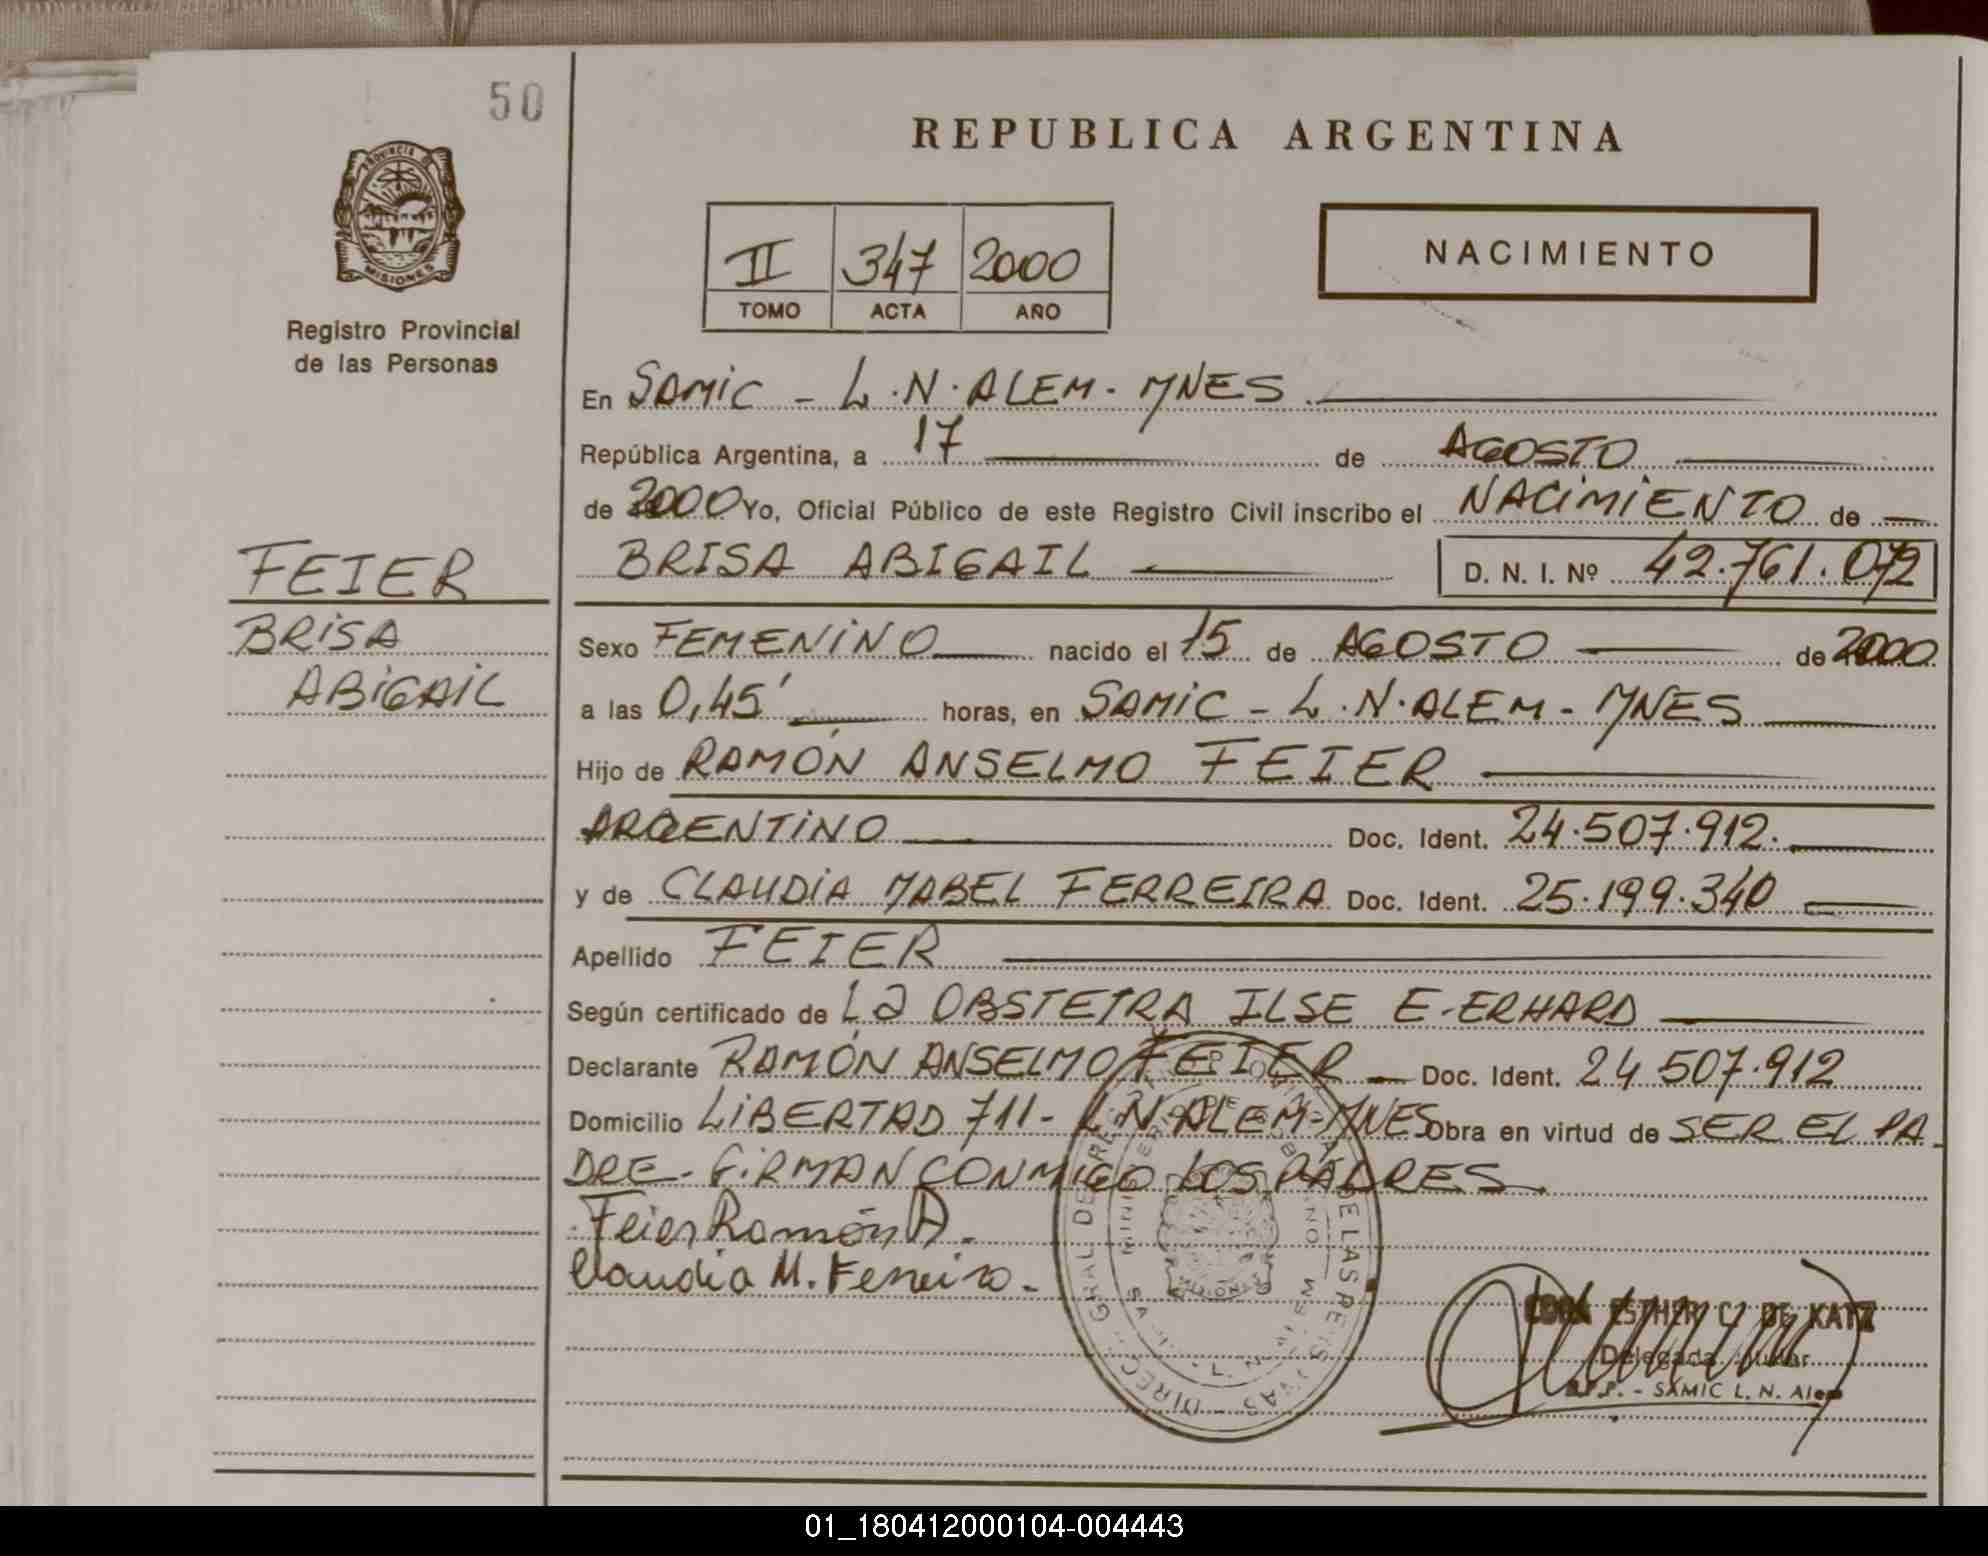 50
PROVINCIA DE
MISIONES
Registro Provincial
de las Personas
FEIER
BRISA
ABIGAIL
REPUBLICA ARGENTINA
II 347 2000
TOMO ACTA AÑO
NACIMIENTO
En SAMIC - L.N. ALEM - MNES.
República Argentina, a 17 de AGOSTO
de 2000 Yo, Oficial Público de este Registro Civil inscribo el NACIMIENTO de
BRISA ABIGAIL D. N. I. Nº 42.761.072
Sexo FEMENINO nacido el 15 de AGOSTO de 2000
a las 0,45' horas, en SAMIC - L.N. ALEM - MNES
Hijo de RAMÓN ANSELMO FEIER
ARGENTINO Doc. Ident. 24.507.912.
y de CLAUDIA MABEL FERREIRA Doc. Ident. 25.199.340
Apellido FEIER
Según certificado de La OBSTETRA ILSE E. ERHARD
Declarante RAMÓN ANSELMO FEIER - Doc. Ident. 24 507.912
Domicilio LIBERTAD 711 - L N ALEM - MNES Obra en virtud de SER EL PA-
DRE - FIRMAN CONMIGO LOS PADRES.
Feier Ramón A.
Claudia M. Ferreira.-
ESTHER C. DE KATZ
Delegada Titular
R.P.P. - SAMIC L. N. Alem
01_180412000104-004443